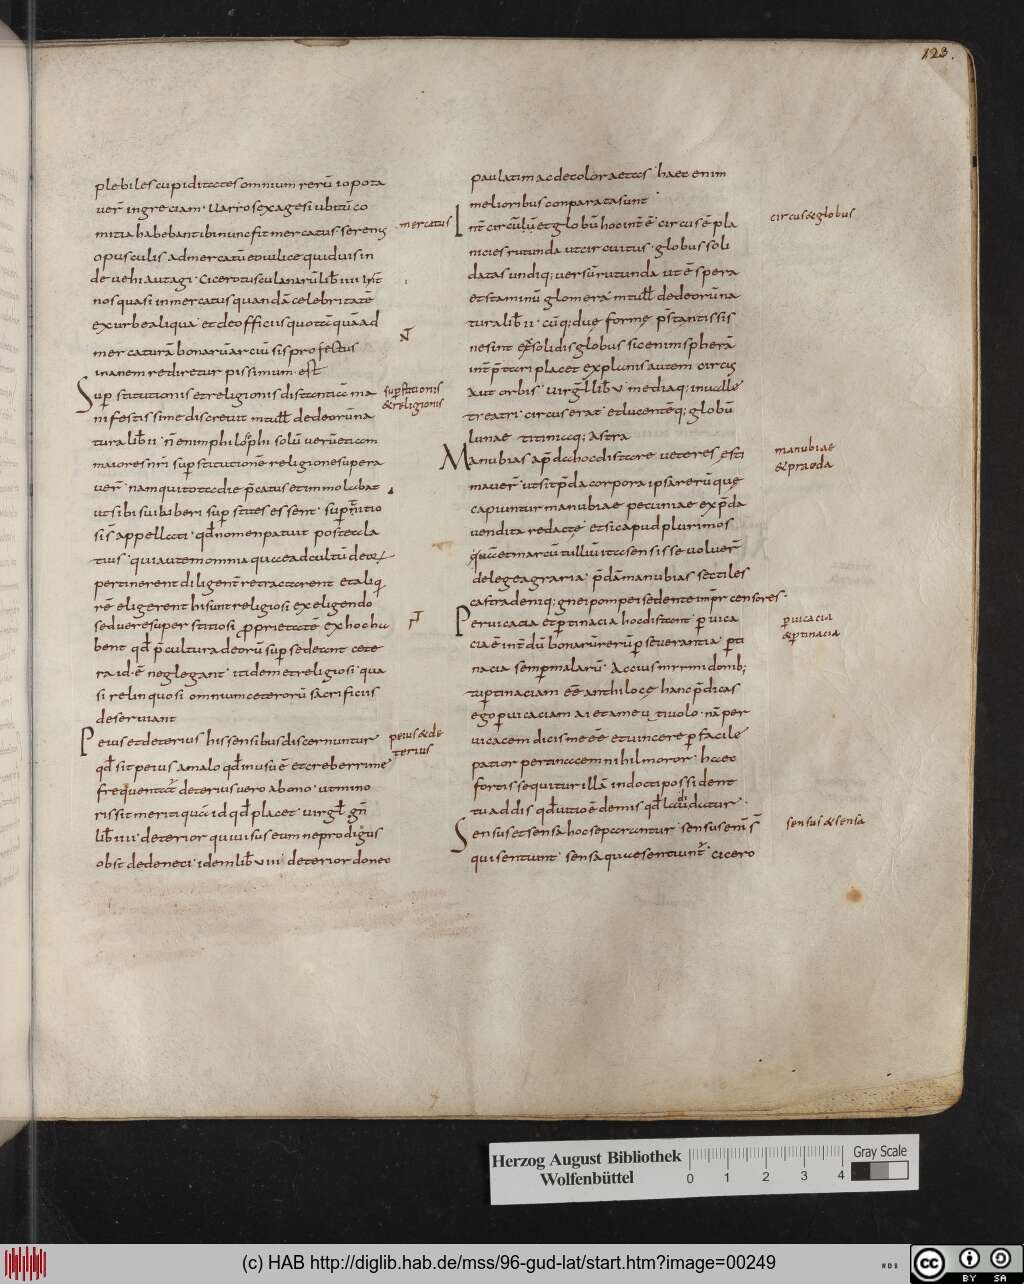 123.
plebiles cupiditates omnium rerū · io pota
uer̄ ingreciam · Uarro sexagesi ubi tū co
mitia habebant ibi nunc fit mercatus serens
opusculis ad mercatū euilice quid uis in
de uehi aut agi · Cicero tusculanarū lib̄ iiii · Inst̄
nos quasi in mercatus quandā celebritatē
ex urbe aliqua · et de officiis quo tāquā ad
mercaturā bonarū arciū sis profectus
inanem redire turpissimum · est
Sup̄stitutionis et religionis distantiā ma
nifestissime discreuit m tull̄ de deorū na
tura lib̄ ii · n̄ enim philosophi solū uerū etiam
maiores nr̄i sup̄stitutionē religione supera
uer̄ · nam qui tota die p̄catus et immolabat
ut sibi sui liberi sup̄stites essent · sup̄stitio
sis̄ appellati · qd̄ nomen patuit postea la
tius · qui autem omnia quae ad cultū deor̄
pertinerent diligent̄ retractarent et aliq
rē eligerent hi sunt religiosi ex eligendo
sed uere superstitiosi proprietatē ex hoc ha
bent qd̄ p̄ cultura deorū sup̄sedeant cete
ra id · ē neglegant · itidem et religiosi · qua
si relinquosi omnium ceterorū sacrificiis
deseruiant
Peius et deterius his sensibus discernuntur
qd̄ sit peius a malo qd̄ in usu ē et creberrime
frequentat̄ deterius uero a bono · ut mino
ris sit meriti quā id qd̄ placet · uirgl̄ gn̄
lib̄ iiii · deterior qui uisus eum ne prodigus
obst dede neci · idem lib̄ viii · deterior donec
mercatus
sup̄stitionis
& religionis
peius & de
terius
paulatim ac decolor aetas · haec enim
melioribus comparata sunt
Int̄ circulū et globū hoc int̄ ē · circus ē pla
nicies rutunda ut circuitus · globus soli
datas undiq; uersū rutunda ut ē spera
et staminū glomera · m tull̄ de deorū na
tura lib̄ ii · cūq; due forme p̄stantissis
ne sint ex̄ solidis globus sic enim spherā
int̄p̄tari placet ex planis autem circus
aut orbis · uirgl̄ lib̄ v · mediaq; in ualle
treatri · circus erat · et lucenteq; globū
lunae · titiniaq; astra
Manubias a p̄da hoc distare ueteres esti
mauer̄ · ut sit p̄da corpora ipsa rerū que
capiuntur manubiae · pecuniae ex p̄da
uendita redacte · et sic apud plurimos
quā et marcū tulliū ita sensisse uoluer̄
de lege agraria · p̄dā manubias sectiles
castra deniq; gnei pompei sedente imp̄r censores ·
Peruicacia et p̄tinacia hoc distant · p̄uica
cia ē int̄dū bonarū rerū p̄seuerantia · p̄ti
nacia semp̄ malarū · Accius mirmidonib;
tu p̄tinaciam eē antiloce hanc p̄dicas
ego p̄uicaciam aiet a me u tiuolo · nā per
uicacem dicis me eē et uincere p̄facile
patior pertinacem nihil moror · haec
fortis sequitur illā indocti possident
tu addis qd̄ uitio ē demis qd̄ laudi datur ·
Sensus et sensa hoc separantur · sensus enī s̄
qui sentiunt · sensa quae sentiunt̄ · cicero
circus & globus
manubiae
& praeda
p̄uicacia
& p̄tinacia
sensus & sensa
Herzog August Bibliothek
Wolfenbüttel
0 1 2 3 4
Gray Scale
(c) HAB http://diglib.hab.de/mss/96-gud-lat/start.htm?image=00249
WDB
CC BY SA